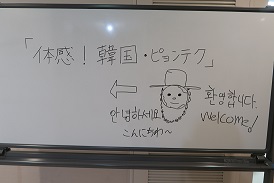 「体感！韓国・ピョンテク」
안녕하세요
こんにちわ〜
환영합니다.
Welcome!